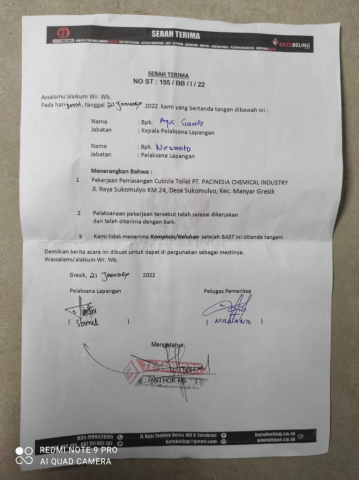 SERAH TERIMA
BATUBELING
SERAH TERIMA
NO ST : 155 / BB / I / 22
Assalamu'alaikum Wr. Wb.
Pada hari jumat, tanggal 21 Januari 2022 kami yang bertanda tangan dibawah ini :
Nama : Bpk. Agus
Jabatan : Kepala Pelaksana Lapangan
Nama : Bpk.
Jabatan : Pelaksana Lapangan
Menerangkan Bahwa :
1 Pekerjaan Pemasangan Cubicle Toilet PT. PACINESIA CHEMICAL INDUSTRY
Jl. Raya Sukomulyo KM 24, Desa Sukomulyo, Kec. Manyar Gresik
2 Pelaksanaan pekerjaan tersebut telah selesai dikerjakan
dan telah diterima dengan baik.
3 Kami tidak menerima Komplain/Keluhan setelah BAST ini ditanda tangani
Demikian berita acara ini dibuat untuk dapat di pergunakan sebagai mestinya.
Wassalamu'alaikum Wr. Wb.
Gresik, 21 Januari 2022
Pelaksana Lapangan Petugas Pemeriksa
( Slamet ) ( )
Mengetahui
REDMI NOTE 9 PRO
AI QUAD CAMERA